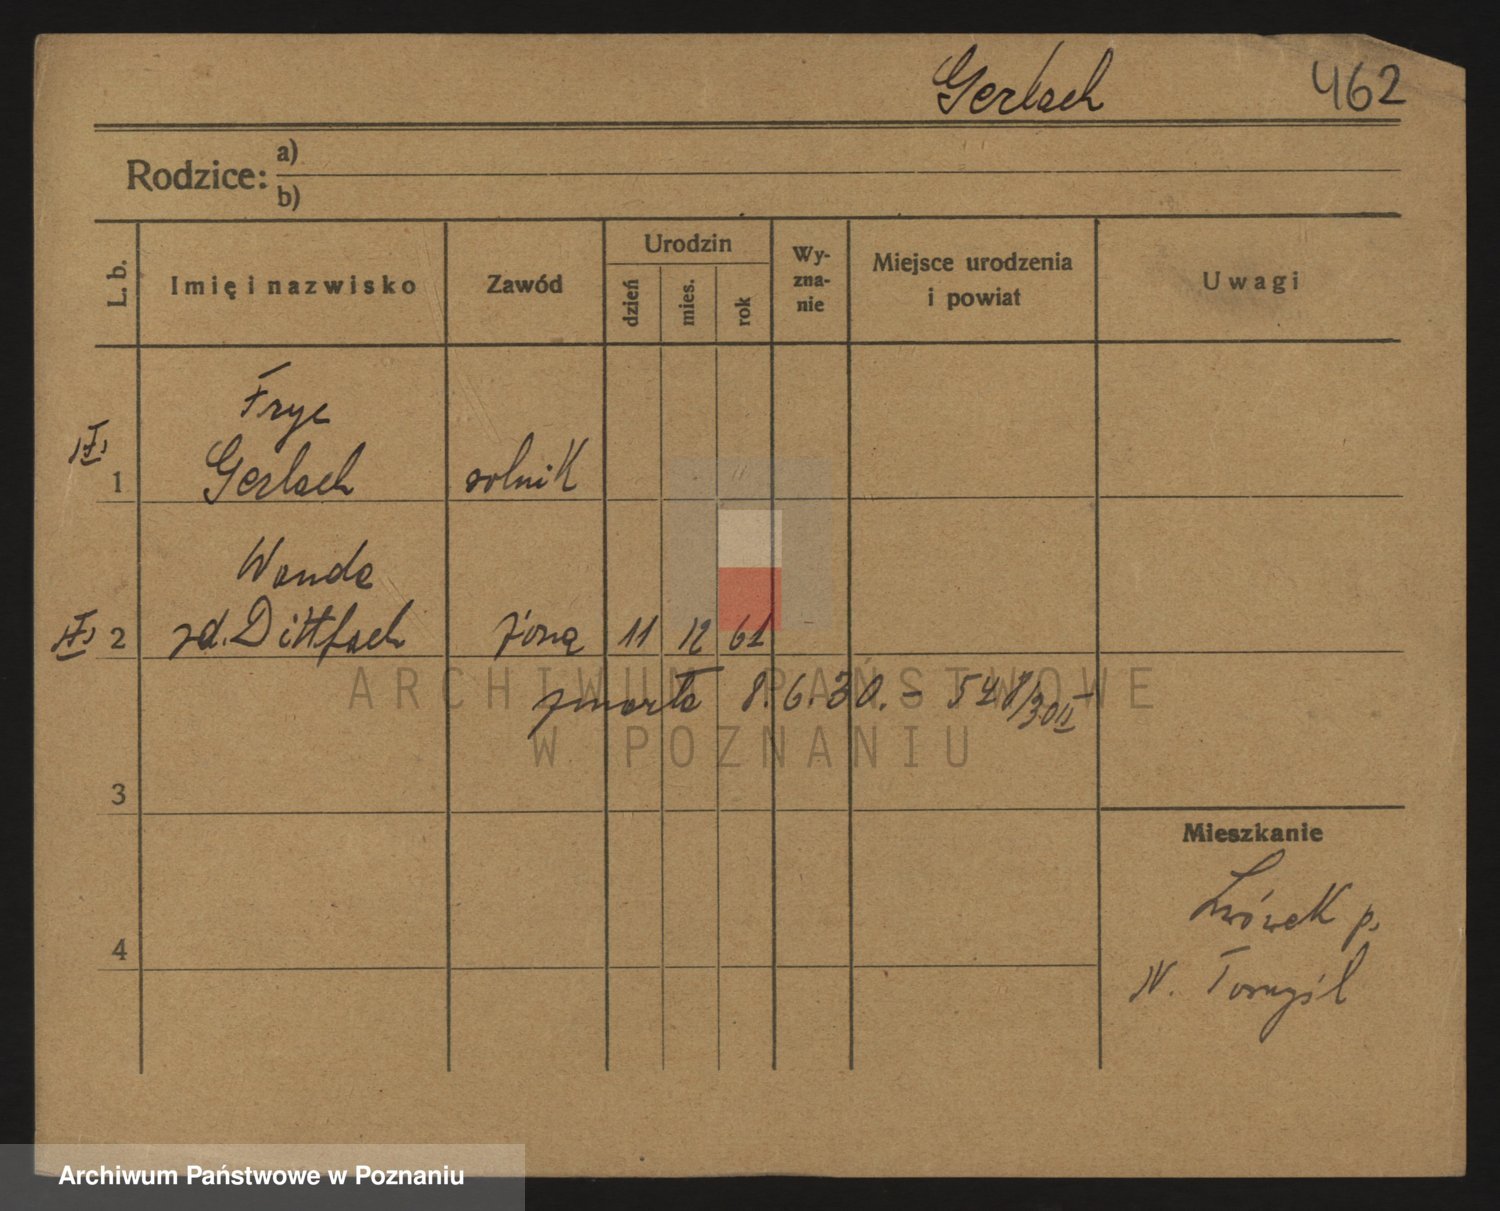 Gerlach 462
Rodzice: a)
b)
L. b. Imię i nazwisko Zawód Urodzin dzień mies. rok Wy-zna-nie Miejsce urodzenia i powiat Uwagi
Fryc
1 Gerlach rolnik
Wanda
2 zd. Dittfach żona 11 12 61
zmarła 8.6.30. – 548/30 II
3
Mieszkanie
Lwówek p.
4
N. Tomyśl
ARCHIWUM PAŃSTWOWE
W POZNANIU
Archiwum Państwowe w Poznaniu